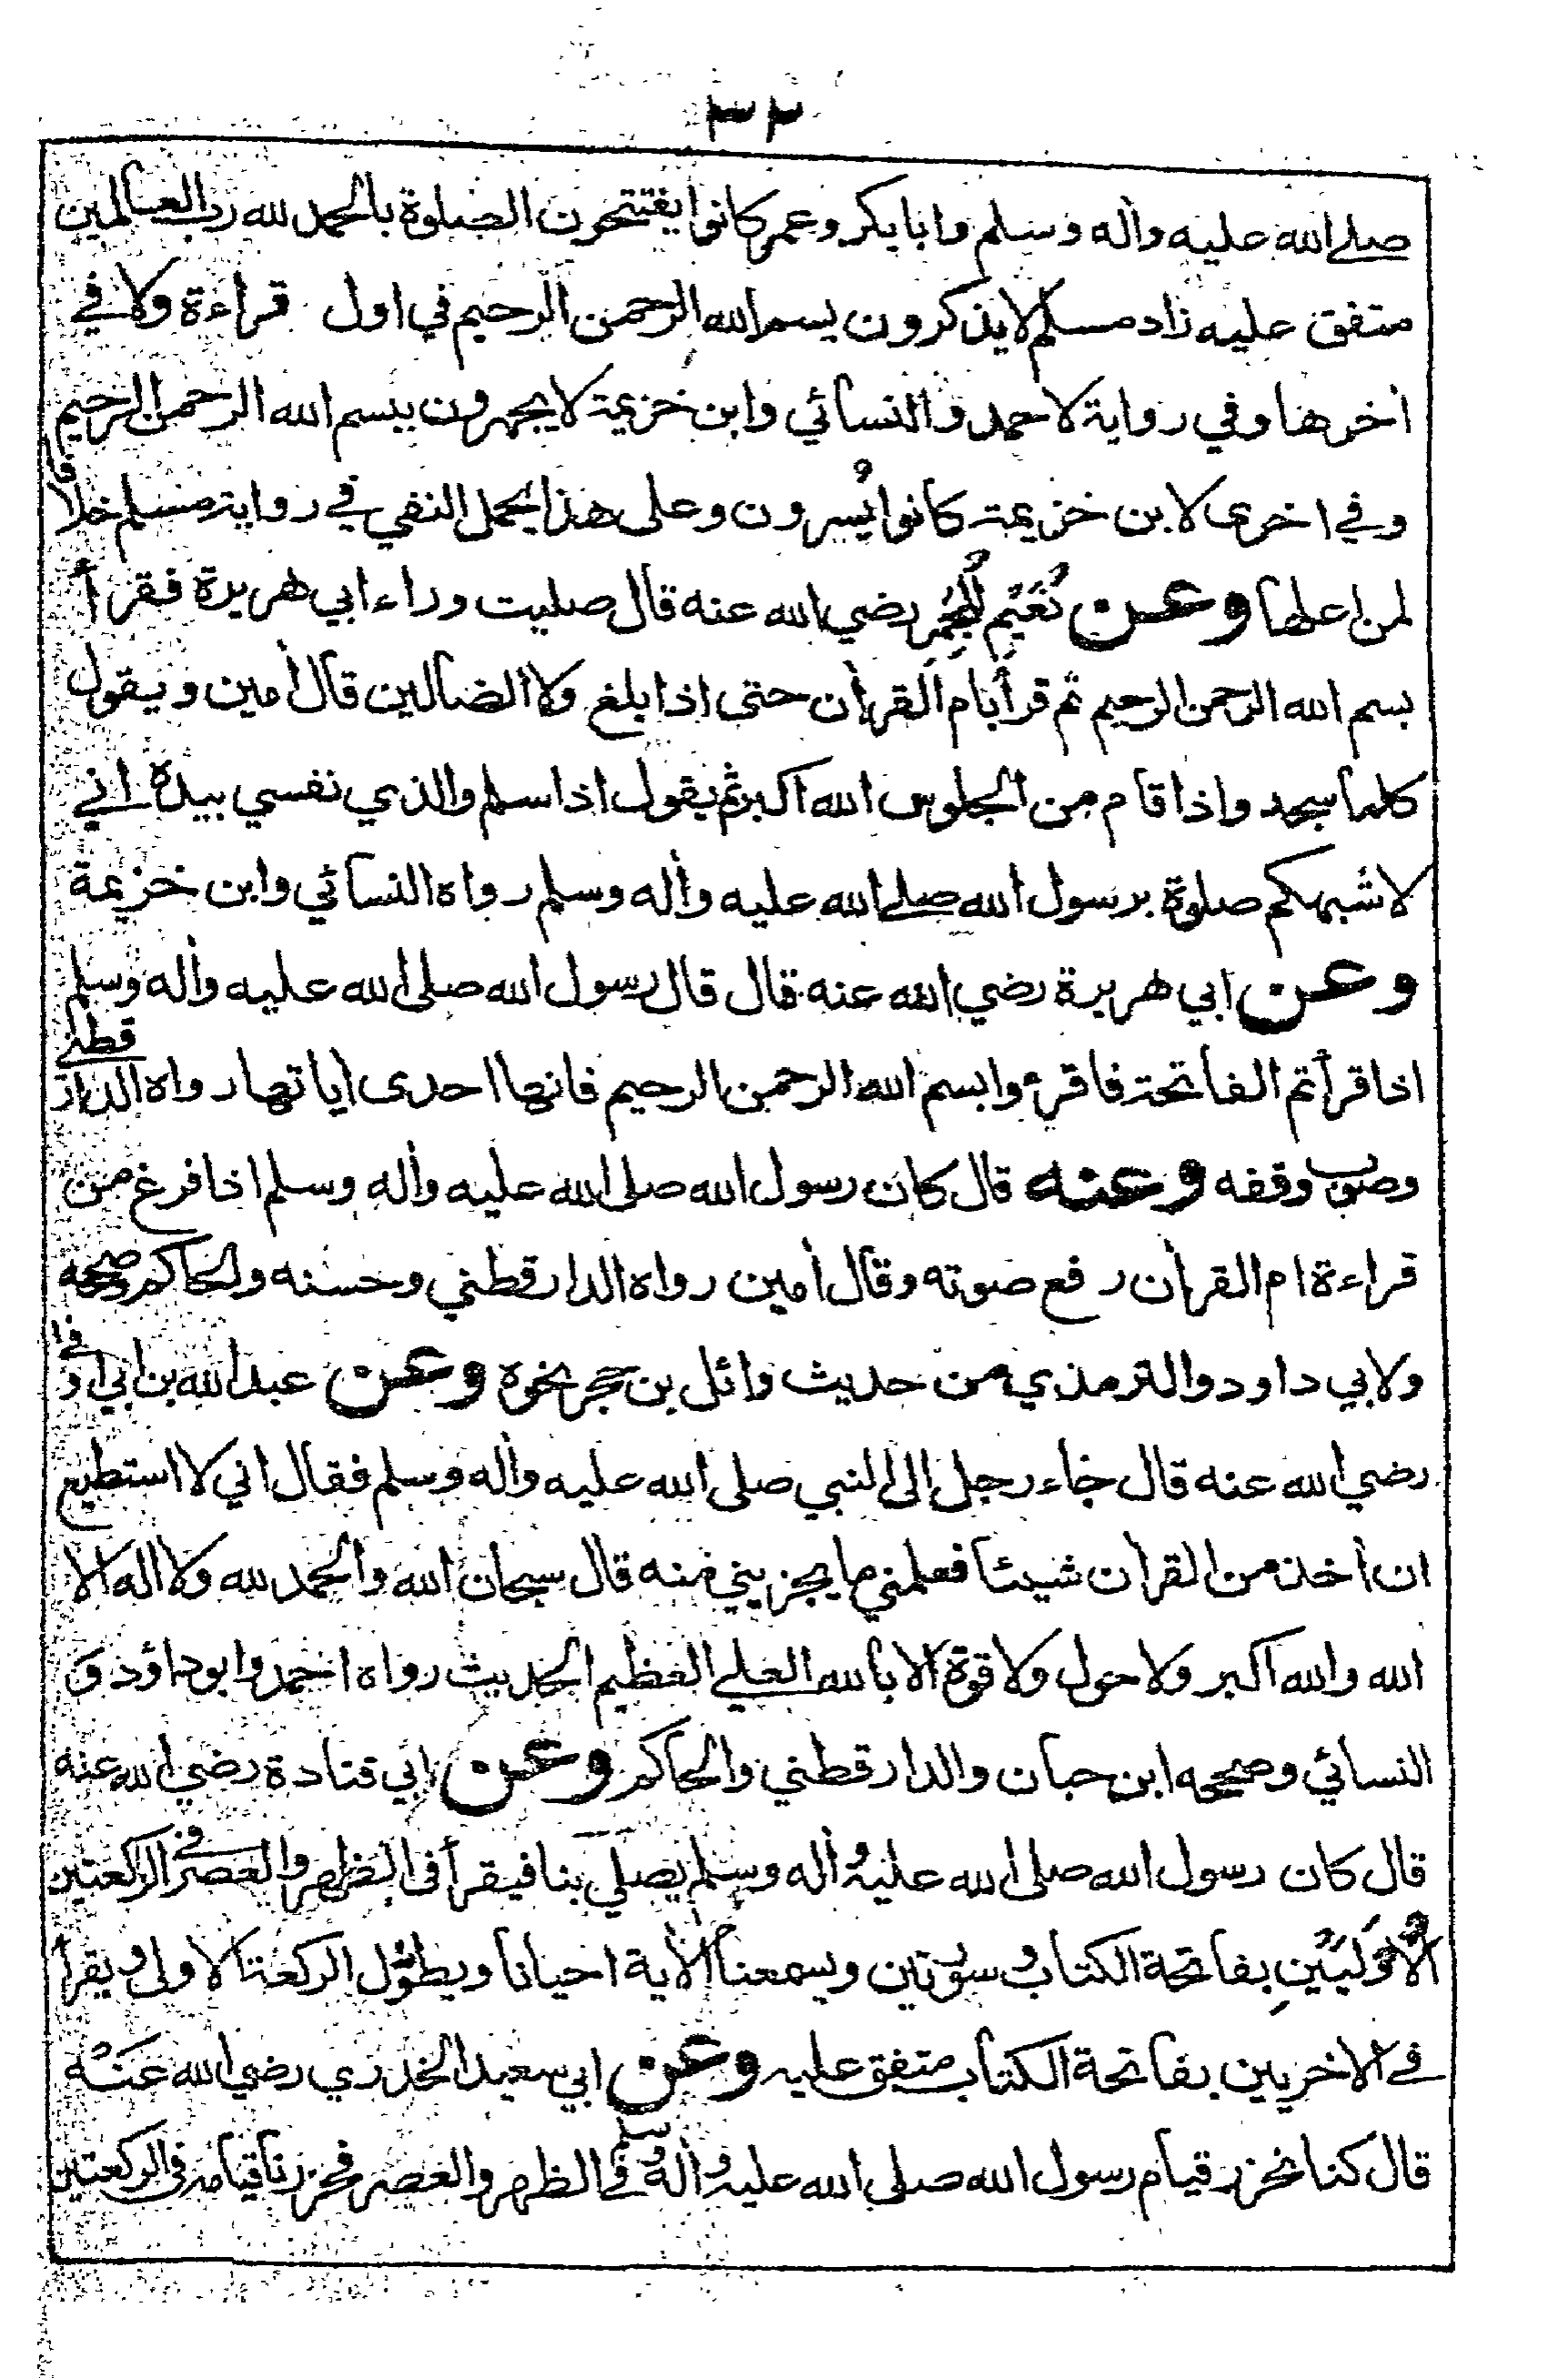 ٣٢
صلے الله عليه واٰله وسلم وابا بكر وعمر كانوا يفتتحون الصلوة بالحمد لله رب العالمين
متفق عليه زاد مسلم لا يذكرون بسم الله الرحمن الرحيم في اول قراءة ولا في
اخرها وفي رواية لاحمد والنسائي وابن خزيمة لا يجهرون ببسم الله الرحمن الرحيم
وفي اخرى لابن خزيمة كانوا يُسرون وعلى هذا يحمل النفي في رواية مسلم خلافا
لمن اعلها وعن نُعَيْمِ المُجْمِرِ رضي الله عنه قال صليت وراء ابي هريرة فقرأ
بسم الله الرحمن الرحيم ثم قرأ بام القرأن حتى اذا بلغ ولا الضالين قال أمين ويقول
كلما سجد واذا قام من الجلوس الله اكبر ثم يقول اذا سلم والذي نفسي بيده اني
لاشبهكم صلوة برسول الله صلے الله عليه وأله وسلم رواه النسائي وابن خزيمة
وعن ابي هريرة رضي الله عنه قال قال رسول الله صلى الله عليه وأله وسلم
اذا قرأتم الفاتحة فاقرءوا بسم الله الرحمن الرحيم فانها احدى اياتها رواه الدارقطني
وصوب وقفه وعنه قال كان رسول الله صلى الله عليه وأله وسلم اذا فرغ من
قراءة ام القرأن رفع صوته وقال أمين رواه الدارقطني وحسنه والحاكم وصححه
ولابي داود والترمذي من حديث وائل بن حجر نحوه وعن عبد الله بن ابي اوفى
رضي الله عنه قال جاء رجل الى النبي صلى الله عليه وأله وسلم فقال اني لا استطيع
ان أخذ من القرأن شيئا فعلمني ما يجزيني منه قال سبحان الله والحمد لله ولا اله الا
الله والله اكبر ولا حول ولا قوة الا بالله العلي العظيم الحديث رواه احمد وابو داؤد و
النسائي وصححه ابن حبان والدارقطني والحاكم وعن ابي قتادة رضي الله عنه
قال كان رسول الله صلى الله عليه وأله وسلم يصلي بنا فيقرأ في الظهر والعصر في الركعتين
الْأُوْلَيَيْنِ بفاتحة الكتاب وسورتين ويسمعنا الأية احيانا ويطوّل الركعة الاولى ويقرأ
في الاخريين بفاتحة الكتاب متفق عليه وعن ابي سعيد الخدري رضي الله عَنْه
قال كنا نحزر قيام رسول الله صلى الله عليه وأله وسلم في الظهر والعصر فحزرنا قيامه في الركعتين